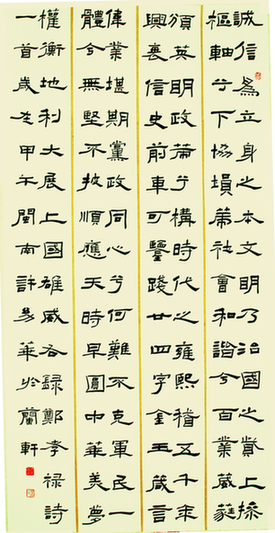 誠信為立身之本文明乃治國之上操
樞軸兮下協壎篪社會和諧兮百業葳蕤
頌英明政兮構時代之雍熙稽五千年
興衰信史前車可鑒踐廿四字金玉箴言
偉業堪期黨政同心兮何難不克軍民一
體兮無堅不摧順應天時早圓中華美夢
權衡地利大展上國雄威右錄鄭孝祿詩
一首歲在甲午閩南許易華於蘭軒